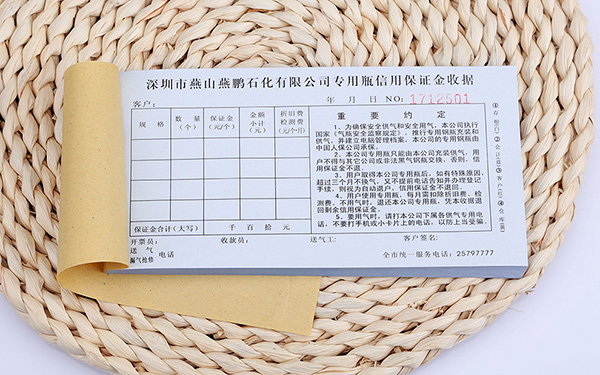 深圳市燕山燕鹏石化有限公司专用瓶信用保证金收据
客户：
年 月 日 NO: 1712501
规 格 数 量（个） 保证金（元/个） 金额小计（元） 折旧费检测费（元/个月）
重 要 约 定
1、为确保安全供气和安全用气，本公司执行
国家《气瓶安全监察规定》，推行专用钢瓶充装和
供气，并建立电脑管理档案，本公司的专用钢瓶由
中国人保公司承保。
2、本公司专用瓶只能由本公司充装供气，用
户不得与其它公司或非法黑气钢瓶交换，否则，信
用保证金不退。
3、用户取得本公司专用瓶后，如有特殊原因，
超过三个月不换气，又不提前电话告知并办理登记
手续，则视为自动退户，信用保证金不退回。
4、用户使用专用瓶，每月需扣除折旧费、检
测费，不用气时，退还本公司专用瓶，凭本收据退
回剩余信用保证金。
5、要用气时，请打本公司下属各供气专用电
话，不要打手机或小卡片上的电话，以防上当受骗。
保证金合计（大写） 千 百 拾 元
开票员： 收款员： 送气工： 客户签名：
送 气
漏气抢修 电话
全市统一服务电话：25797777